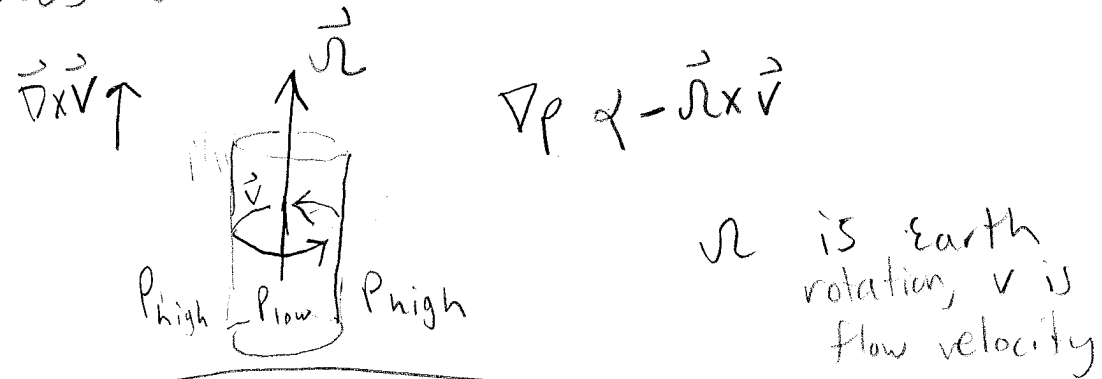 Ω⃗
∇⃗×v⃗ ↑
∇p ∝ -Ω⃗×v⃗
v⃗
Phigh Plow Phigh
Ω is Earth
rotation, v is
flow velocity